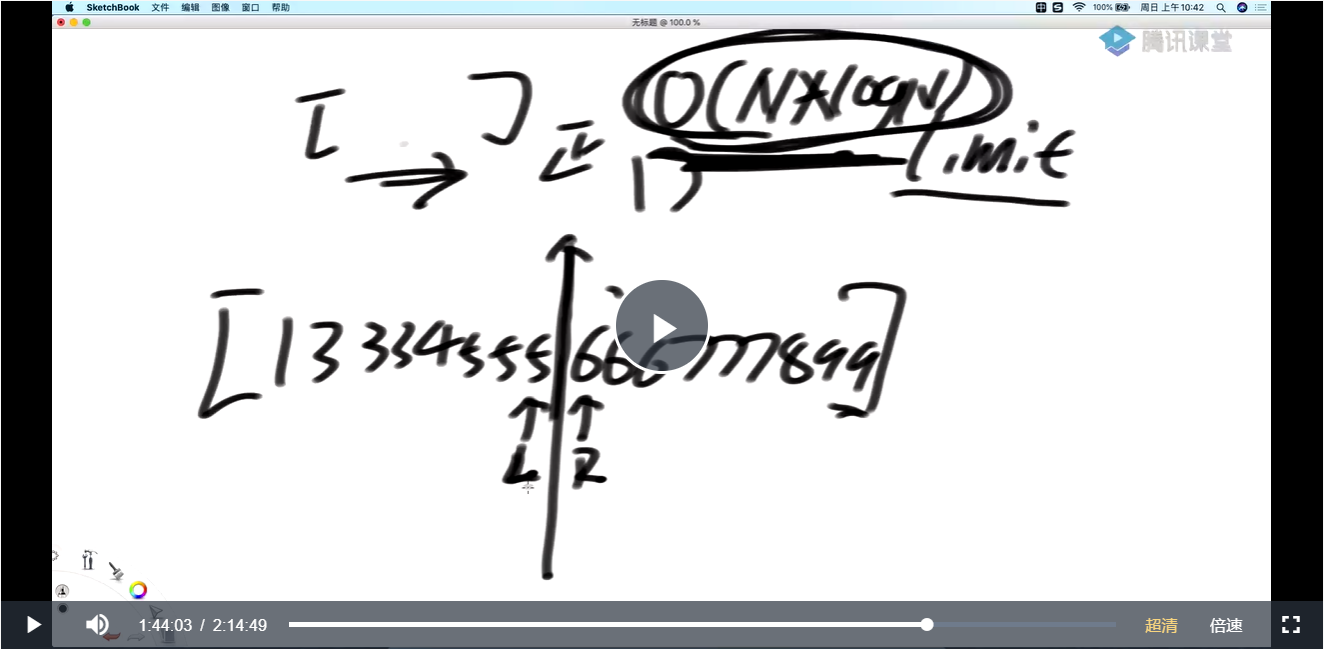 SketchBook 文件 编辑 图像 窗口 帮助 中 S 100% 周日 上午10:42
无标题 @ 100.0 %
腾讯课堂
[ ] 正 O(N*logN)
13 limit
[13334555 666777899]
L R
1:44:03 / 2:14:49 超清 倍速